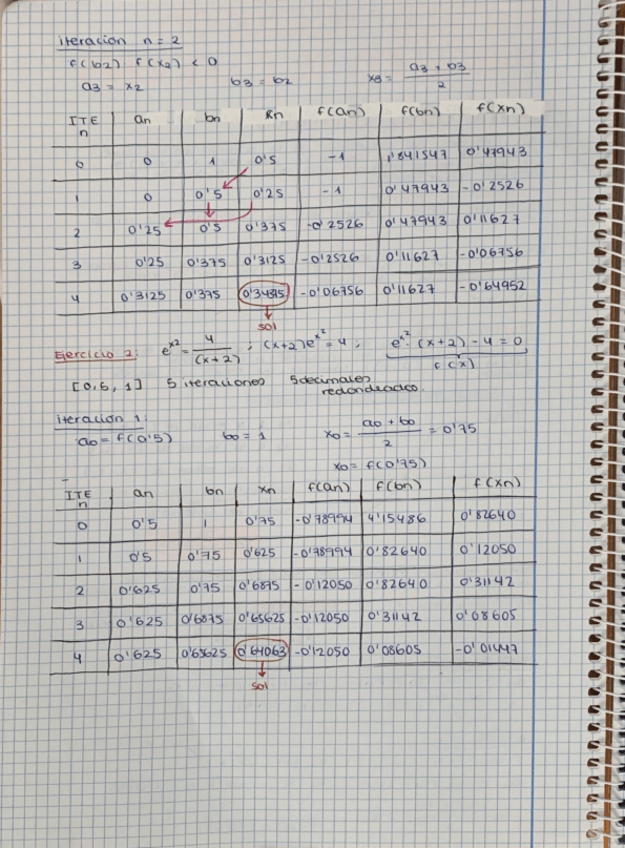 iteración n=2
f(b2) f(x2) < 0
a3 = x2 b3 = b2 x3 = (a3 + b3)/2
ITE n an bn xn f(an) f(bn) f(xn)
0 0 1 0'5 -1 1'841547 0'47943
1 0 0'5 0'25 -1 0'47943 -0'2526
2 0'25 0'5 0'375 -0'2526 0'47943 0'11627
3 0'25 0'375 0'3125 -0'2526 0'11627 -0'06756
4 0'3125 0'375 0'34375 -0'06756 0'11627 -0'64952
sol
Ejercicio 2: e^x² = 4/(x+2) ; (x+2)e^x² = 4 ; e^x² · (x+2) - 4 = 0
f(x)
[0,5, 1] 5 iteraciones 5 decimales
redondeados.
iteración 1:
a0 = f(0'5) b0 = 1 x0 = (a0 + b0)/2 = 0'75
x0 = f(0'75)
ITE n an bn xn f(an) f(bn) f(xn)
0 0'5 1 0'75 -0'78994 4'15486 0'82640
1 0'5 0'75 0'625 -0'78994 0'82640 0'12050
2 0'625 0'75 0'6875 -0'12050 0'82640 0'31142
3 0'625 0'6875 0'65625 -0'12050 0'31142 0'08605
4 0'625 0'65625 0'64063 -0'12050 0'08605 -0'01447
sol